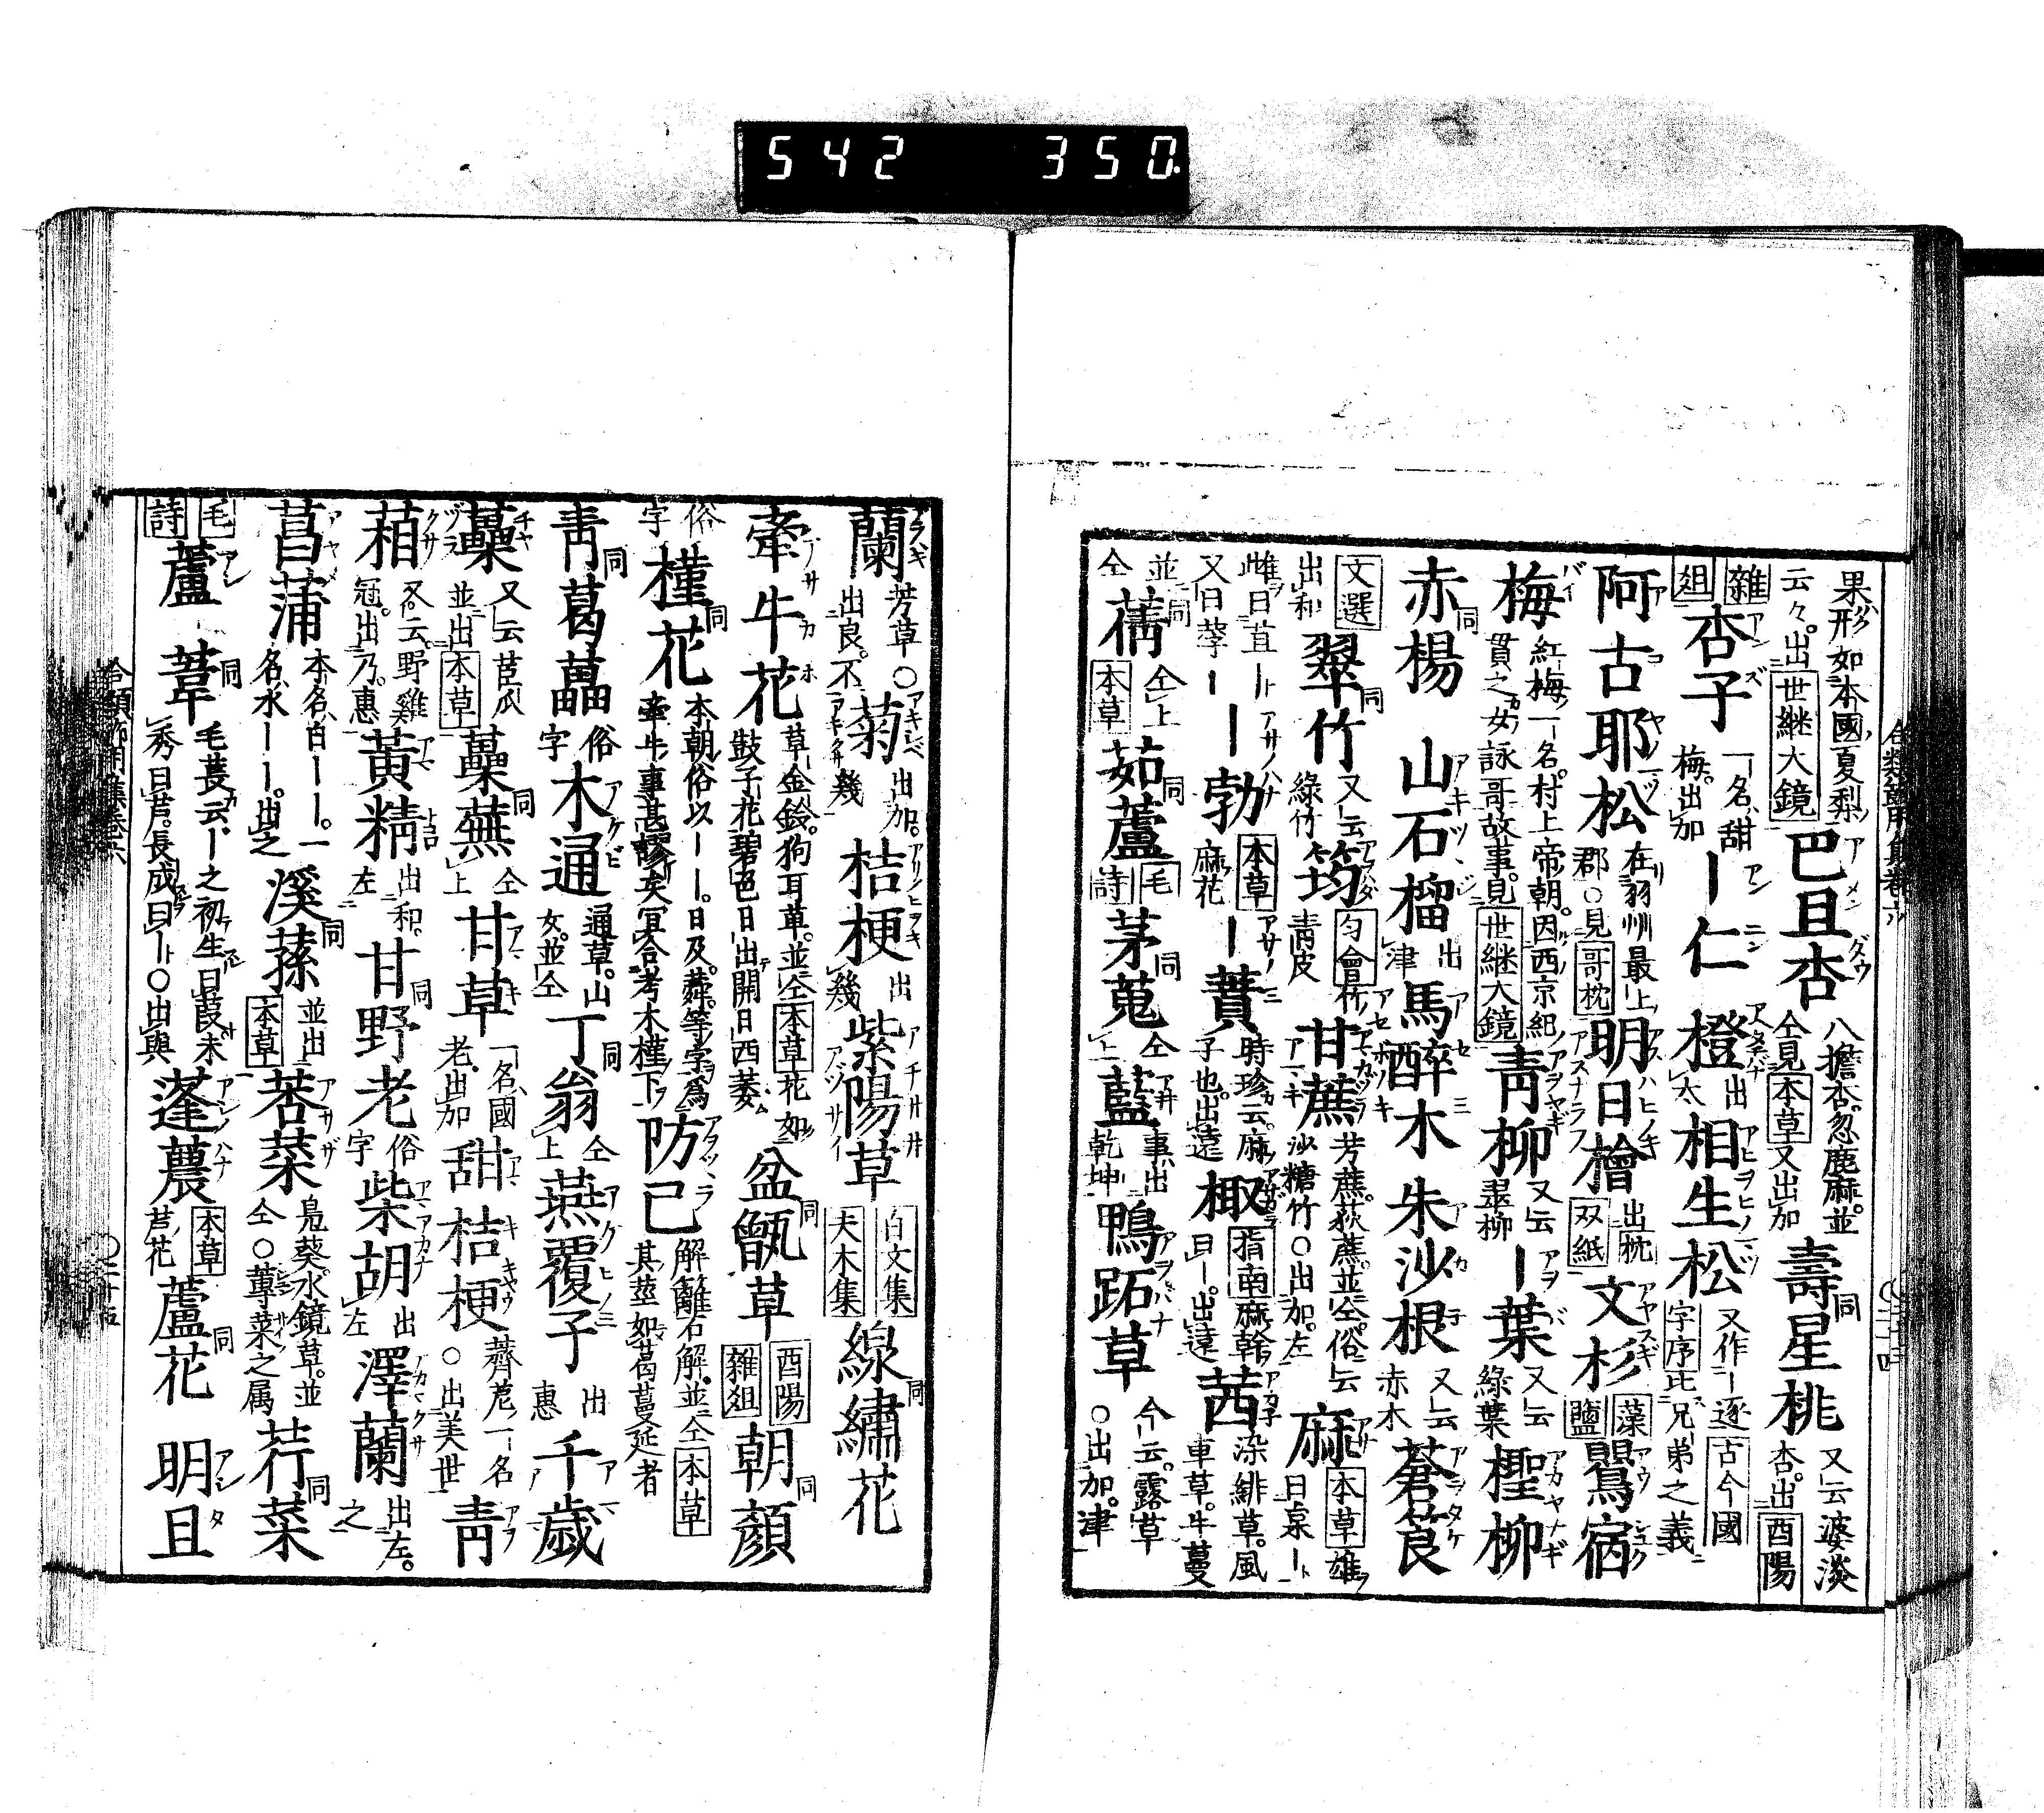 542 350.
果形如本國夏梨
云々出世継大鏡 巴旦杏 八擔杏忽鹿麻並仝見本草又出加 壽星桃 又云婆淡杏出酉陽
雜俎 杏子 一名甜梅出加 一仁 橙 出太 相生松 又作一逐古今國字序疋兄弟之義
阿古耶松 在羽州最上郡○見哥枕 明日檜 出枕双紙 文杉 藻鹽 鸎宿
梅 紅梅一名村上帝朝因西京紀貫之女詠哥故事見世継大鏡 青柳 又云 一葉 又云綠葉 檉柳
赤楊 山石榴 出津 馬醉木 朱沙根 又云赤木 蒼筤
文選出和 翠竹 又云綠竹 筠 青皮 甘蔗 芳蔗荻蔗並仝俗云沙糖竹○出加左 麻 本草雄曰枲一
雌曰苴一又曰荸一 一勃 本草麻花 一蕡 時珍云麻子也出遠 棷 指南麻幹曰一出遠 茜 染緋草風車草牛蔓
並仝 蒨 仝上本草 茹藘 毛詩 茅蒐 仝上 藍 事出乾坤 鴨跖草 今云露草○出加津
蘭 芳草○出良不 菊 出加幾 桔梗 出幾 紫陽草 白文集夫木集 線繡花
牽牛花 草金鈴狗耳草並仝本草花如鼓子花碧色日出開日西萎 盆甑草 酉陽雜俎 朝顏
俗字 槿花 本朝俗以一一日及蕣等字為牽牛事甚謬矣冝合考木槿下 防己 解離石解並仝本草其莖如葛蔓延者
青葛藟 俗字 木通 通草山女並仝 丁翁 仝上 燕覆子 出惠 千歲
虆 又云苣瓜並出本草 虆蕪 仝上 甘草 一名國老出加 甜桔梗 薺苨一名○出美世 青
葙 又云野雞冠出乃惠 黃精 出和左 甘野老 俗字 柴胡 出左 澤蘭 出左之
菖蒲 本名白一一一名水一一出之 溪蓀 並出本草 莕菜 鳧葵水鏡草並仝○蓴菜之属 荇菜
毛詩 蘆 葦 毛萇云一之初生曰葭未秀曰芦長成曰一○出與 蓬蕽 本草芦花 蘆花 明旦